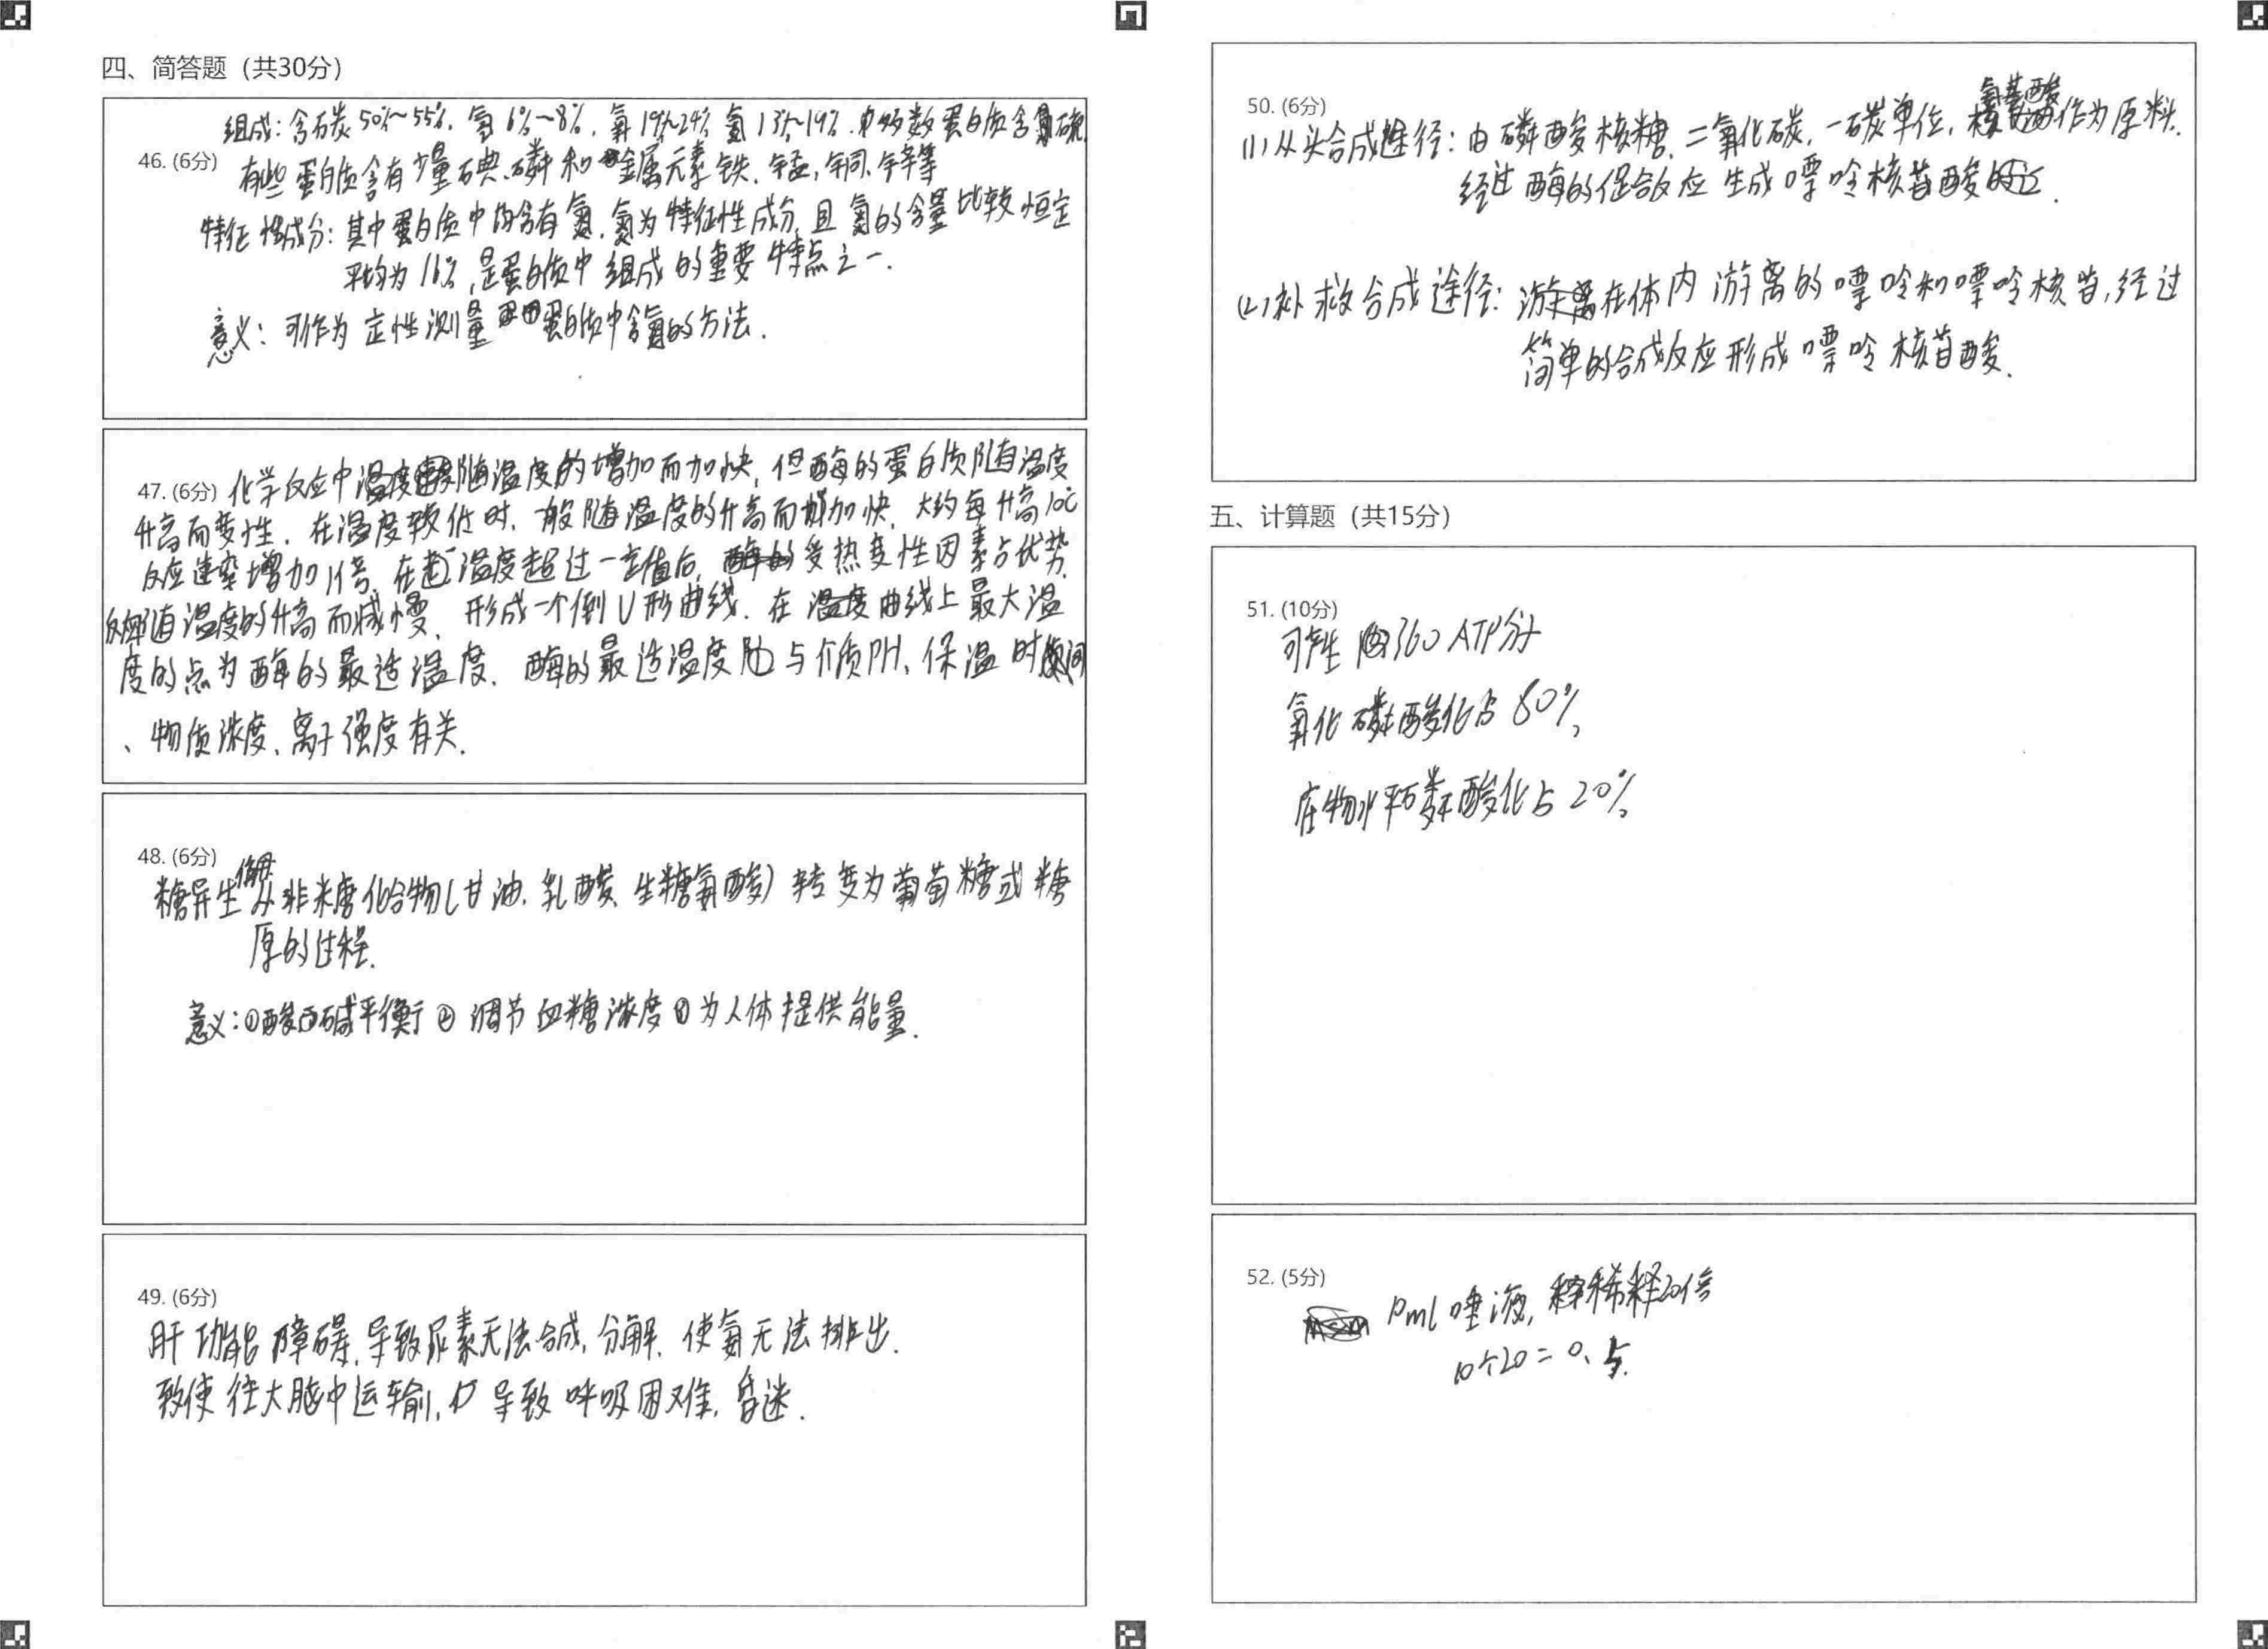 四、简答题（共30分）
组成：含碳50%~55%、氢6%~8%、氧19%~24%、氮13%~19%、大多数蛋白质含硫
46. (6分)
有些蛋白质含有少量碘、磷和金属元素铁、锰、铜、锌等
特征性成分：其中蛋白质中均含有氮，氮为特征性成分，且氮的含量比较恒定
平均为16%，是蛋白质中组成的重要特点之一.
意义：可作为定性测量蛋白质中含氮的方法.
47. (6分) 化学反应中随温度的增加而加快，但酶的蛋白质随温度
升高而变性. 在温度较低时，一般随温度的升高而加快，大约每升高10℃
反应速率增加1倍，在温度超过一定值后，受热变性因素占优势，
反应随温度的升高而减慢，形成一个倒U形曲线. 在曲线上最大温
度的点为酶的最适温度. 酶的最适温度与介质PH、保温时间
、物质浓度、离子强度有关.
48. (6分)
糖异生 从非糖化合物(甘油、乳酸、生糖氨酸)转变为葡萄糖或糖
原的过程.
意义：①酸碱平衡 ② 调节血糖浓度 ③为人体提供能量.
49. (6分)
肝功能障碍，导致尿素无法合成，分解，使氨无法排出.
致使往大脑中运输，导致呼吸困难，昏迷.
50. (6分)
(1)从头合成途径：由磷酸核糖、二氧化碳，一碳单位，氨基酸作为原料.
经过酶的促合反应生成嘌呤核苷酸的.
(2)补救合成途径：在体内游离的嘌呤和嘌呤核苷，经过
简单的合成反应形成嘌呤核苷酸.
五、计算题（共15分）
51. (10分)
可产生360ATP分子
氧化磷酸化占80%
底物水平磷酸化占20%
52. (5分)
10ml唾液，稀释20倍
10÷20=0.5.